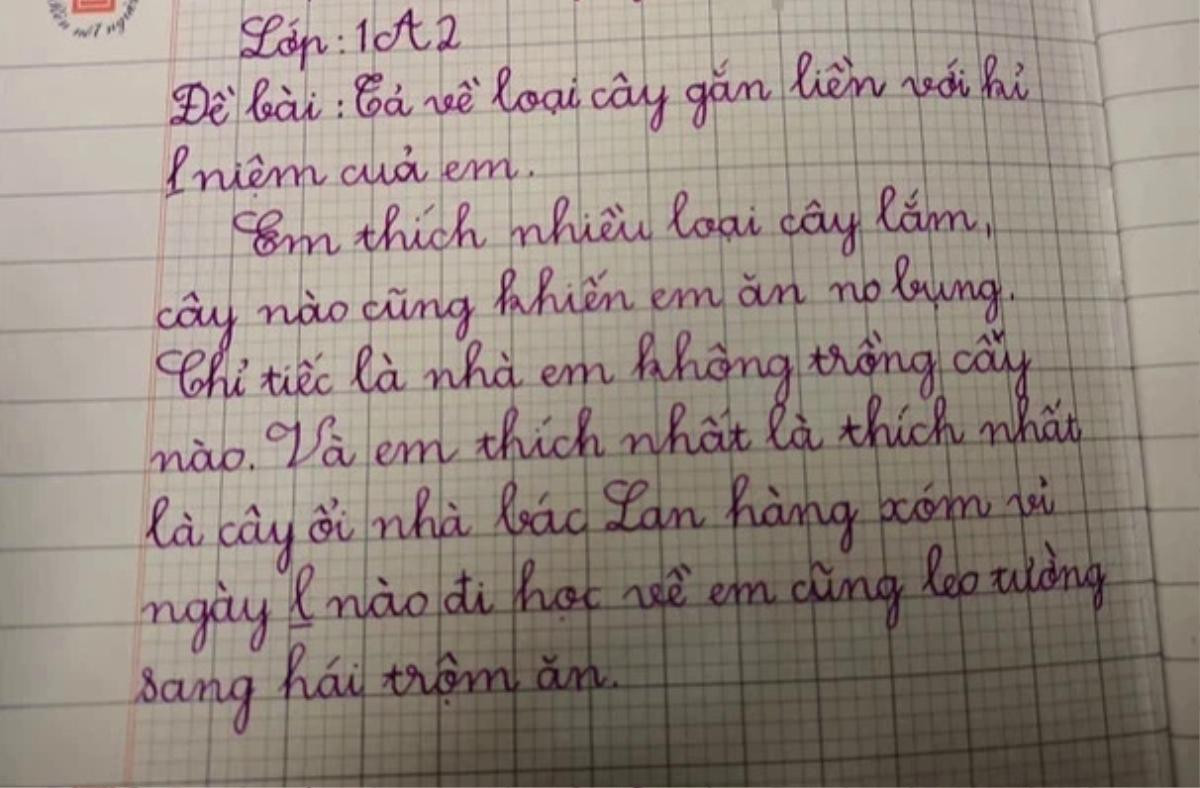 Lớp: 1A2
Đề bài: Tả về loại cây gắn liền với kỉ
niệm cuả em.
Em thích nhiều loại cây lắm,
cây nào cũng khiến em ăn no bụng.
Chỉ tiếc là nhà em không trồng cây
nào. Và em thích nhất là thích nhất
là cây ổi nhà bác Lan hàng xóm vì
ngày nào đi học về em cũng leo tường
sang hái trộm ăn.